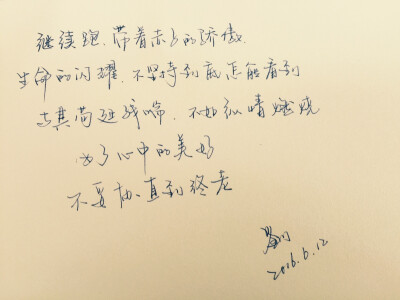 继续跑,带着赤子的骄傲.
生命的闪耀,不坚持到底怎能看到
与其苟延残喘,不如纵情燃烧
为了心中的美好
不妥协直到终老
2016.6.12